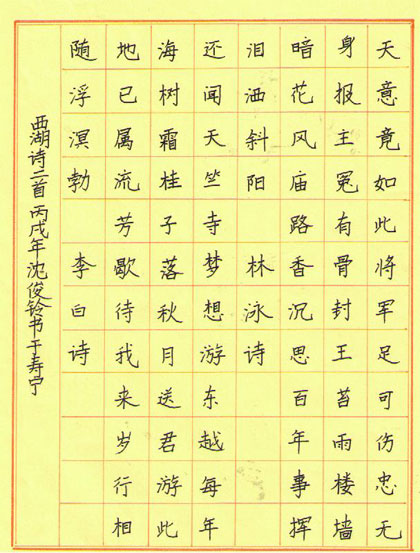 天意竟如此将军足可伤忠无
身报主冤有骨封王苔雨楼墙
暗花风庙路香沉思百年事挥
泪洒斜阳 林泳诗
还闻天竺寺梦想游东越每年
海树霜桂子落秋月送君游此
地已属流芳歇待我来岁行相
随浮溟勃 李白诗
西湖诗二首丙戌年沈俊铃书于寿宁